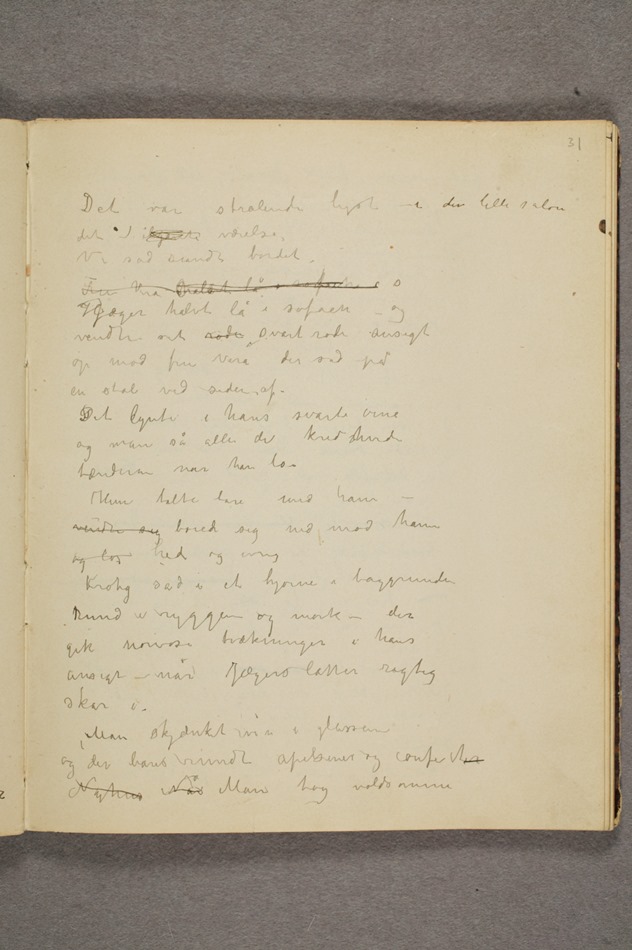 31
Det var strålende lyst – i den lille salon
det værelse,
Vi sad rundt bordet.
Fru lå i sofaen
Jæger halvt lå i sofaen – og
vendte sit røde svært røde ansigt
op mod fru Vera der sad på
en stol ved siden af.
Det lynte i hans svarte øine
og man så alle de kridthvide
tænderne når han lo.
Hun talte bare med ham –
vendte sig bøied sig ned mod ham
og los hed og ivrig
Krohg sad i et hjørne i baggrunden
Rund i ryggen og mørk – der
gik nervøse trækninger i hans
ansigt – når Jægers latter
skar i.
Man skjænket vin i glassene
og der bares rundt apelsiner og confekter
Når Man tog voldsomme